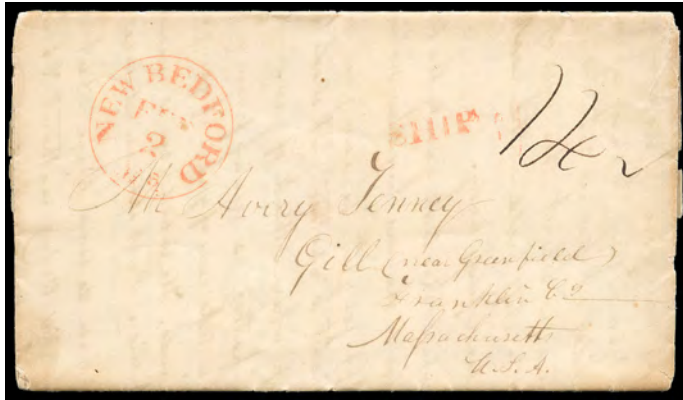 NEW BEDFORD
FEB
2
MS
SHIP
Mr Avery Tenney
Gill (near Greenfield)
Franklin Co
Massachusetts
U.S.A.